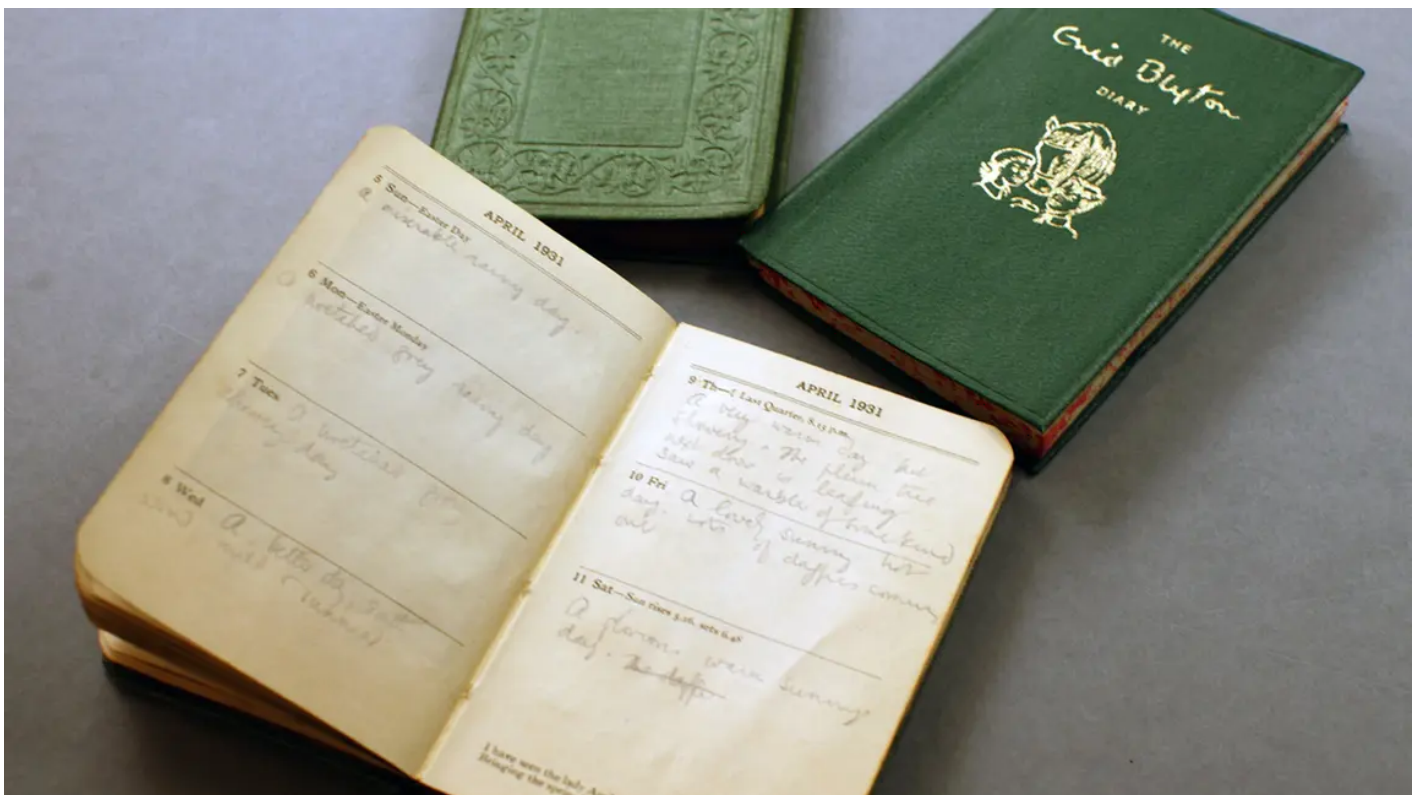 THE
Enid Blyton
DIARY
APRIL 1931
5 Sun—Easter Day
A miserable rainy day.
6 Mon—Easter Monday
A wretched grey rainy day
7 Tues A wretched grey
rainy day
8 Wed A better day,
APRIL 1931
9 Th—Last Quarter, 8.15 p.m.
A very warm day but
showery. The plum tree
next door is leafing
saw a warbler of some kind
10 Fri A lovely sunny hot
day. Lots of daffies coming
out
11 Sat—Sun rises 5.16, sets 6.46
A glorious warm sunny
day. The daffs
I have seen the lady April
Bringing the